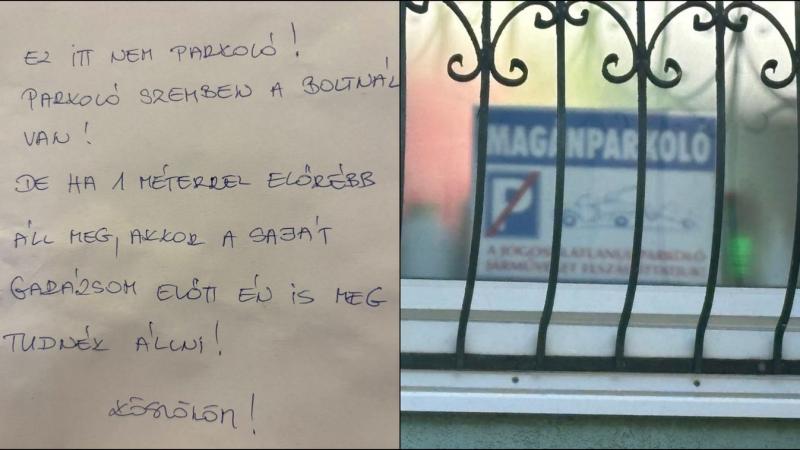 EZ ITT NEM PARKOLÓ!
PARKOLÓ SZEMBEN A BOLTNÁL
VAN!
DE HA 1 MÉTERREL ELŐRÉBB
ÁLL MEG, AKKOR A SAJÁT
GARÁZSOM ELŐTT ÉN IS MEG
TUDNÉK ÁLLNI!
KÖSZÖNÖM!
MAGÁNPARKOLÓ
P
A JOGOSULATLANUL PARKOLÓ
JÁRMŰVEKET ELSZÁLLÍTTATJUK!